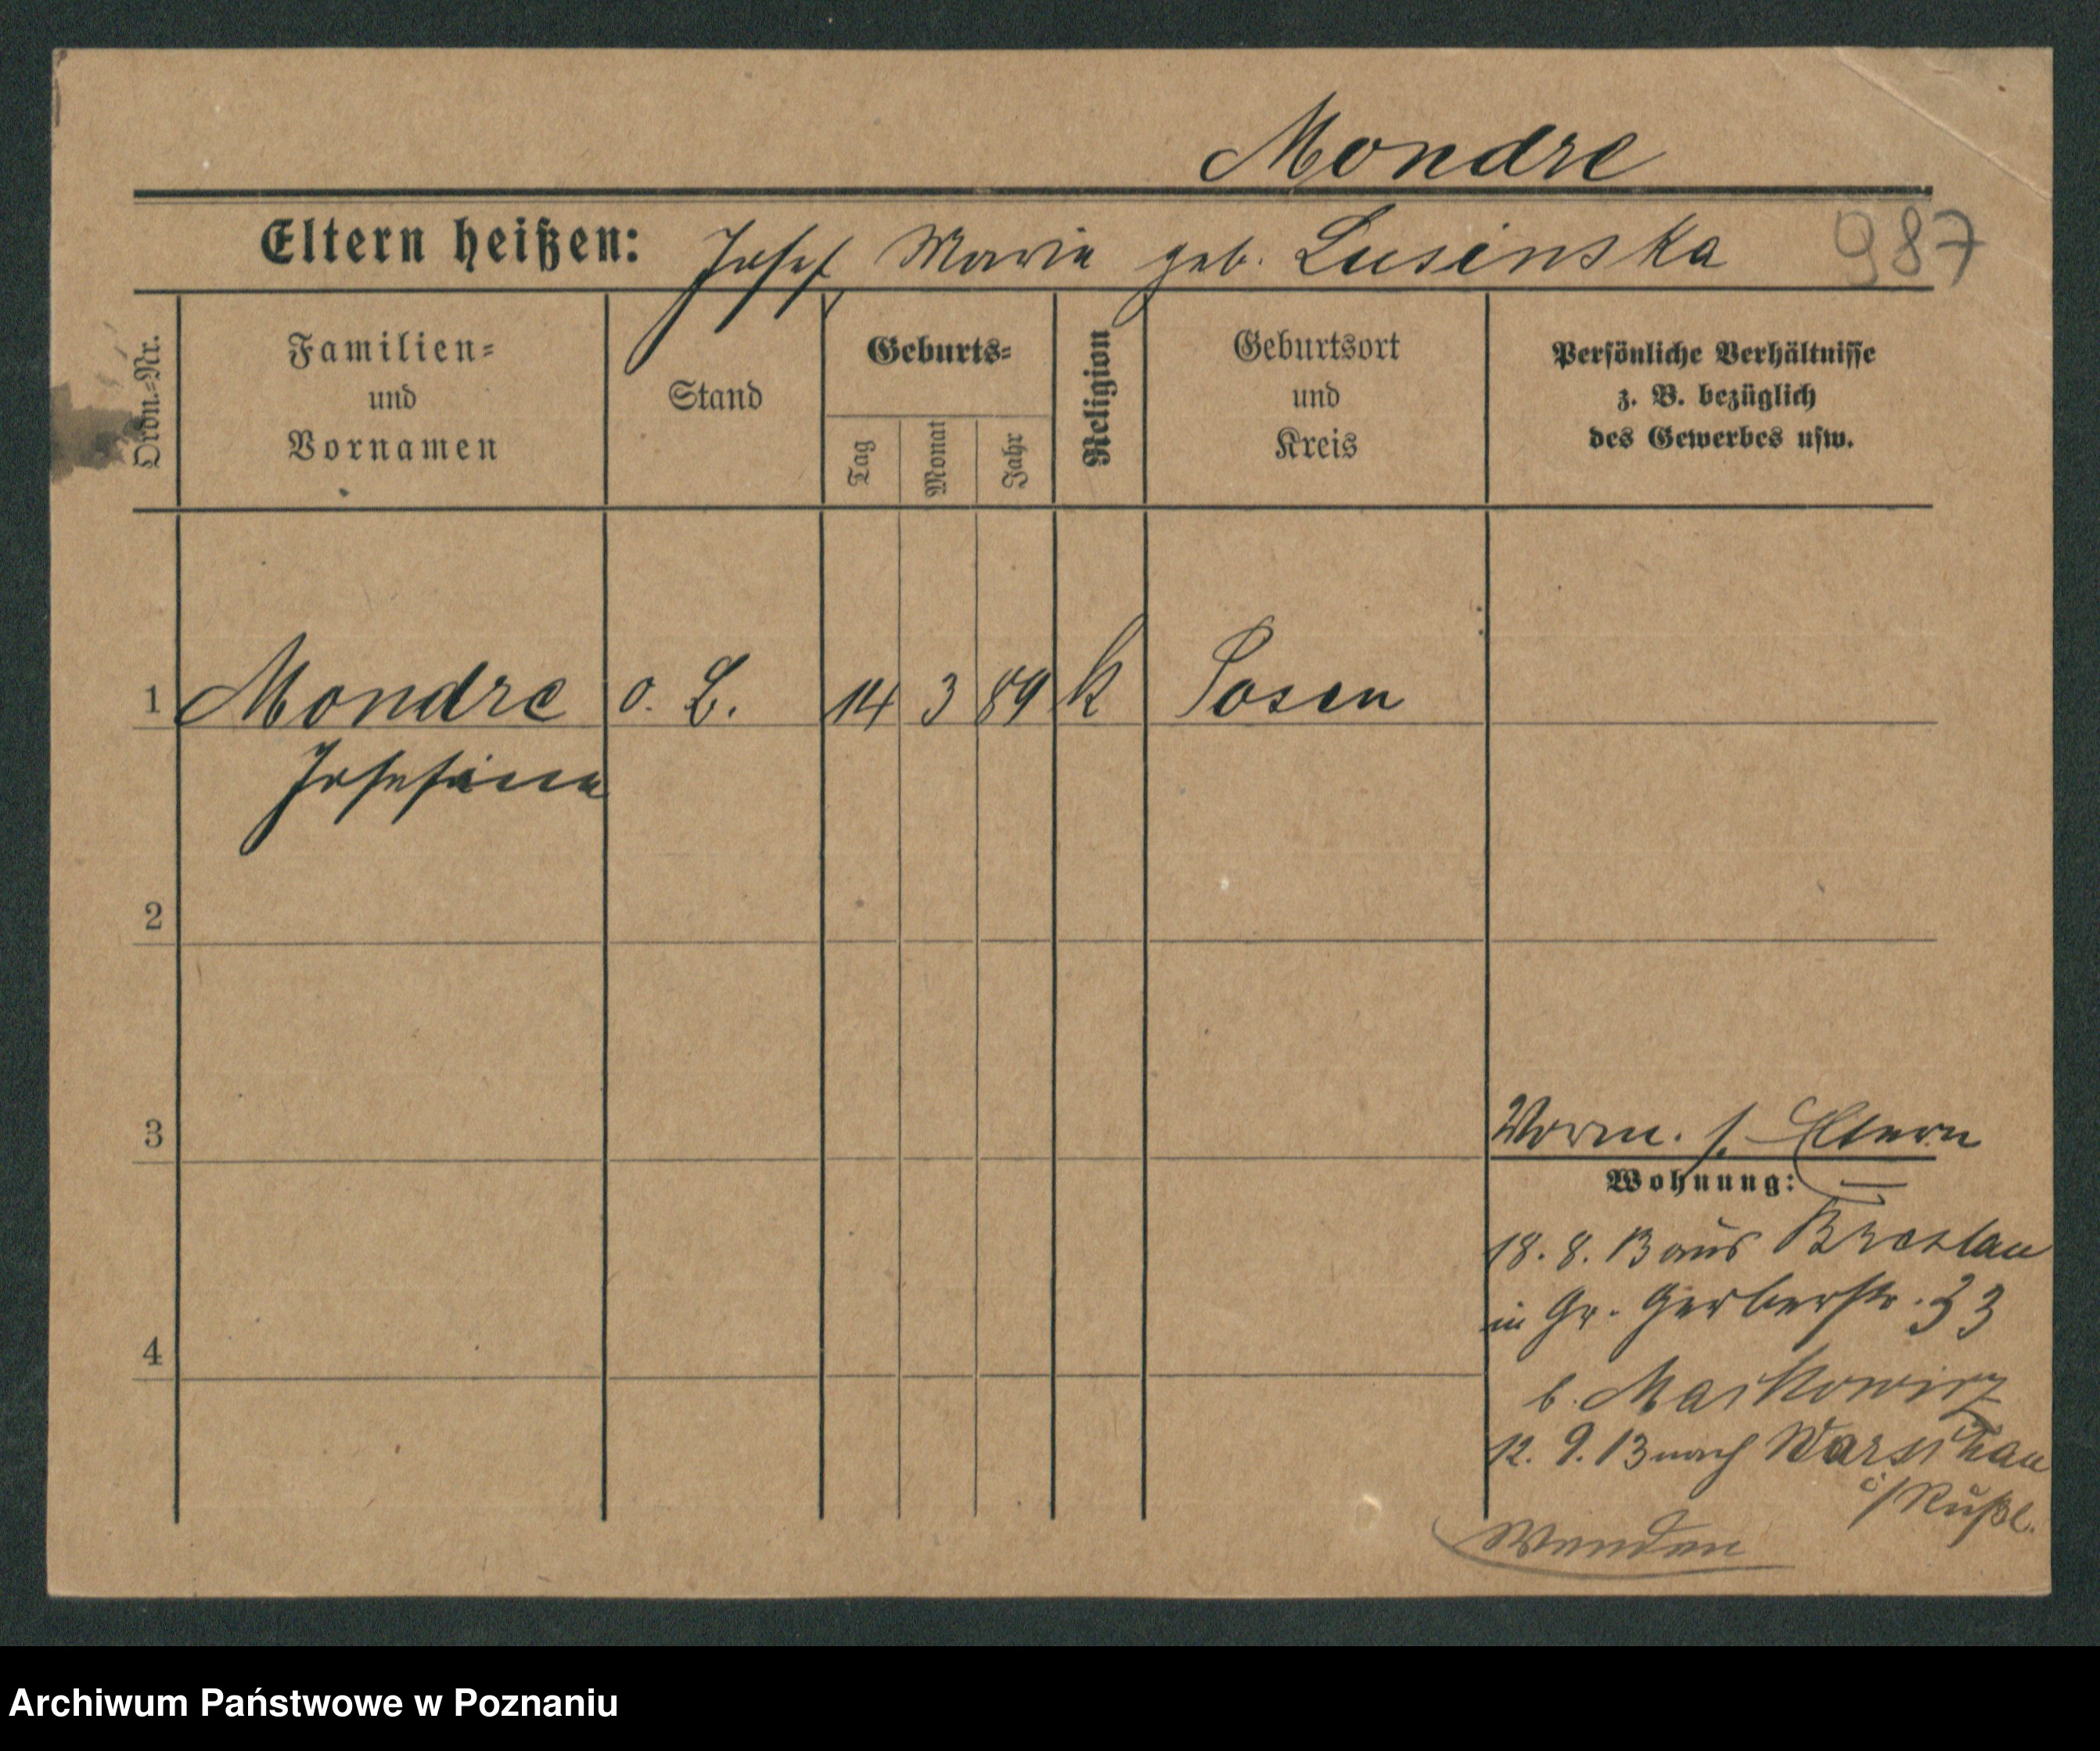 Mondre
Eltern heißen: Josef Maria geb. Lusinska
987
Ordn.-Nr.
Familien-
und
Vornamen
Stand
Geburts-
Tag
Monat
Jahr
Religion
Geburtsort
und
Kreis
Persönliche Verhältnisse
z. B. bezüglich
des Gewerbes usw.
1 Mondre o. B. 14 3 89 k Posen
Josefina
2
3
4
Vorm. s. Eltern
Wohnung:
18. 8. 13 aus Breslau
in Gr. Gerberstr. 33
b. Markowicz
12. 9. 13 nach Warschau
i/Rußl.
Wenden
Archiwum Państwowe w Poznaniu